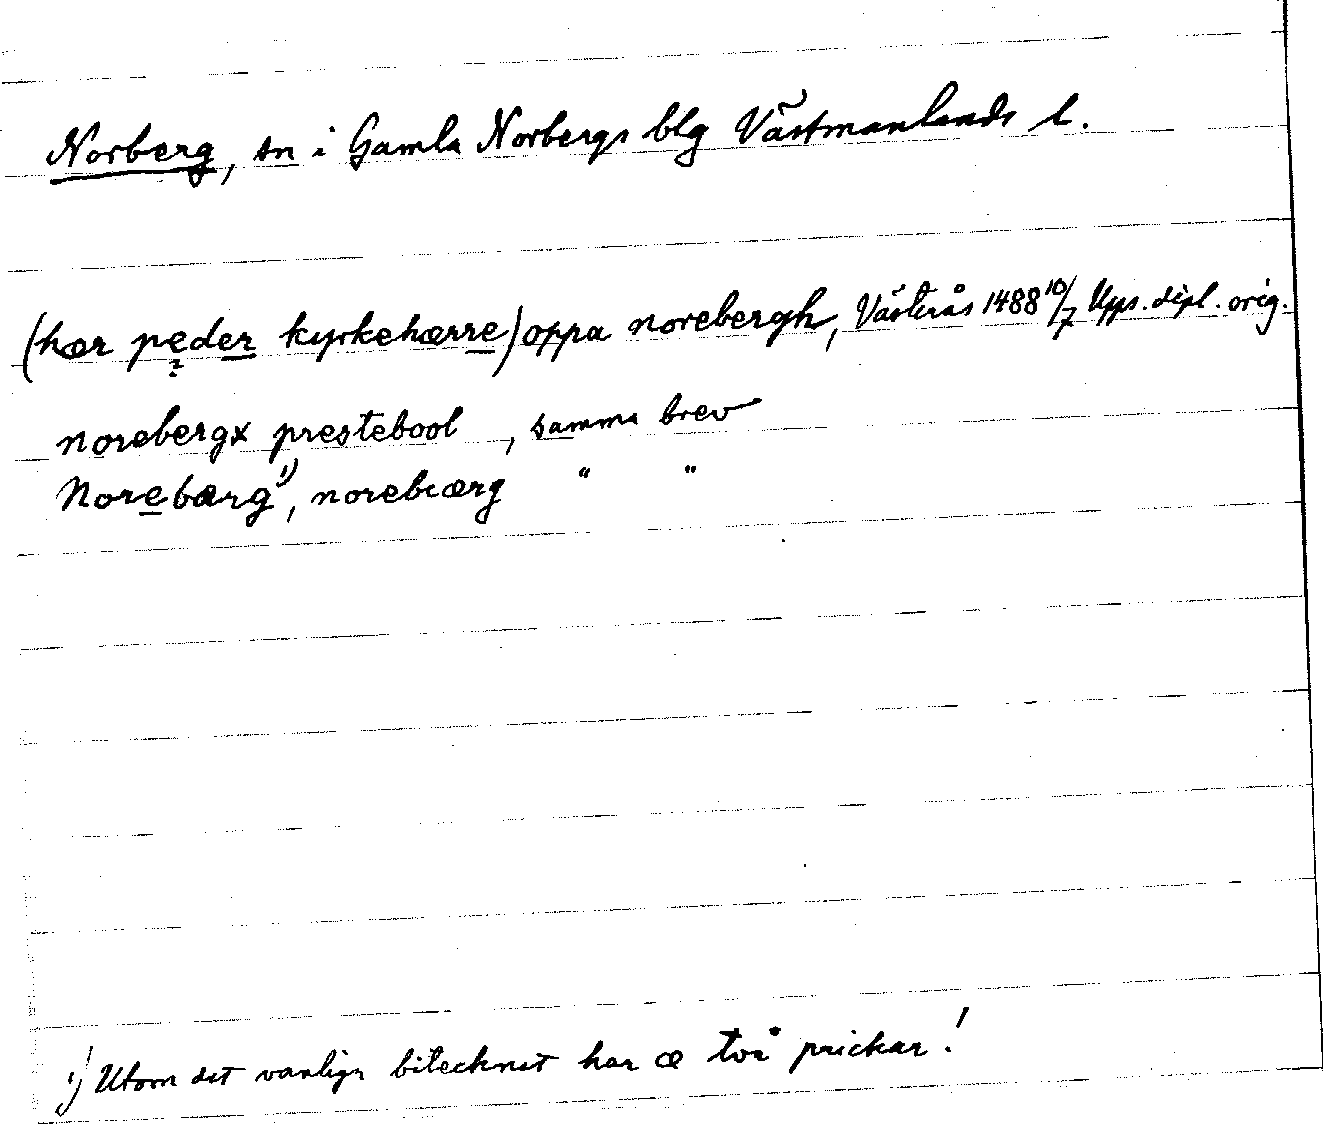 Norberg, sn i Gamla Norbergs blg Västmanlands l.
(hær peder kyrkehærre) oppa norebergh, Västerås 1488 10/7 Upps. dipl. orig.
norebergx prestebool, samma brev
Norebærg 1), norebærg " "
1) Utom det vanliga bitecknet har æ två prickar!